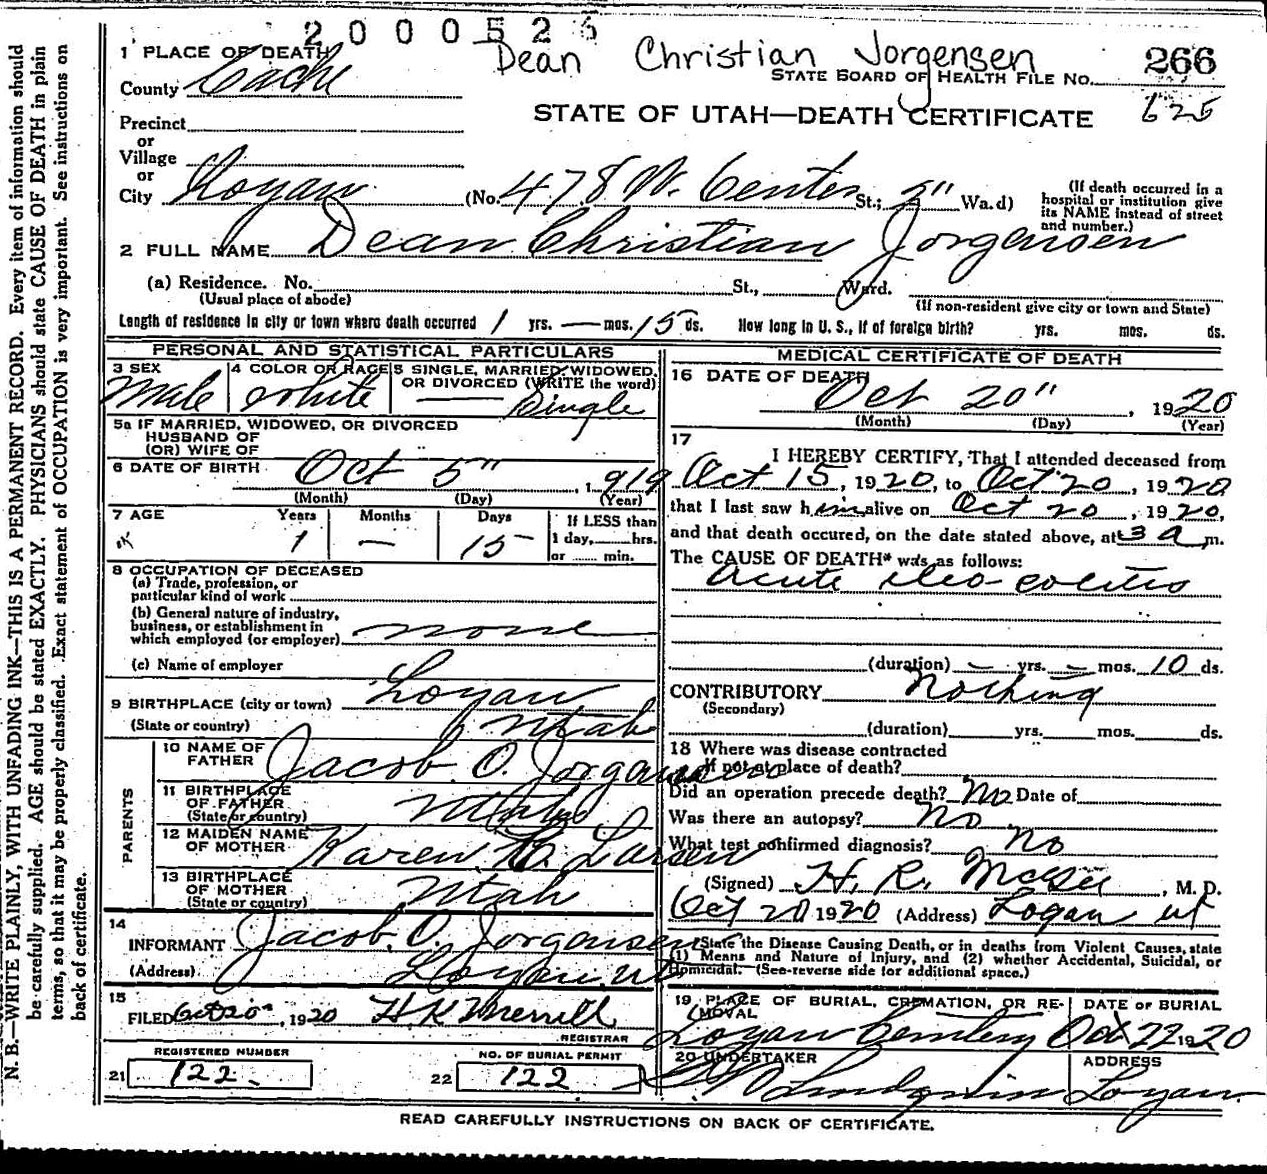 2000526
Dean Christian Jorgensen
1 PLACE OF DEATH
STATE BOARD OF HEALTH FILE NO. 266
625
County Cache
STATE OF UTAH—DEATH CERTIFICATE
Precinct
or
Village
or
City Logan (No. 478 W. Center St.; 5" Wa.d)
(If death occurred in a hospital or institution give its NAME instead of street and number.)
2 FULL NAME Dean Christian Jorgensen
(a) Residence. No. St., Ward.
(Usual place of abode) (If non-resident give city or town and State)
Length of residence in city or town where death occurred 1 yrs. — mos. 15 ds. How long in U. S., if of foreign birth? yrs. mos. ds.
PERSONAL AND STATISTICAL PARTICULARS
3 SEX 4 COLOR OR RACE 5 SINGLE, MARRIED, WIDOWED, OR DIVORCED (WRITE the word)
Male white Single
5a IF MARRIED, WIDOWED, OR DIVORCED
HUSBAND OF
(OR) WIFE OF
6 DATE OF BIRTH Oct 5" 1919
(Month) (Day) (Year)
7 AGE Years Months Days If LESS than
1 — 15 1 day, hrs.
or min.
8 OCCUPATION OF DECEASED
(a) Trade, profession, or
particular kind of work
(b) General nature of industry,
business, or establishment in
which employed (or employer) none
(c) Name of employer
9 BIRTHPLACE (city or town) Logan
(State or country) Utah
PARENTS
10 NAME OF
FATHER Jacob O. Jorgensen
11 BIRTHPLACE
OF FATHER
(State or country) Utah
12 MAIDEN NAME
OF MOTHER Karen B. Larsen
13 BIRTHPLACE
OF MOTHER
(State or country) Utah
14
INFORMANT Jacob O. Jorgensen
(Address) Logan ut
15
FILED Oct 20" 1920 H K Merrill
REGISTRAR
REGISTERED NUMBER NO. OF BURIAL PERMIT
21 122 22 122
MEDICAL CERTIFICATE OF DEATH
16 DATE OF DEATH
Oct 20", 1920
(Month) (Day) (Year)
17
I HEREBY CERTIFY, That I attended deceased from
Oct 15, 1920, to Oct 20, 1920
that I last saw him alive on Oct 20, 1920,
and that death occured, on the date stated above, at 3 a m.
The CAUSE OF DEATH* was as follows:
Acute ileo-colitis
(duration) — yrs. — mos. 10 ds.
CONTRIBUTORY Nothing
(Secondary)
(duration) yrs. mos. ds.
18 Where was disease contracted
if not at place of death?
Did an operation precede death? No Date of
Was there an autopsy? No
What test confirmed diagnosis? No
(Signed) H. R. McGee, M. D.
Oct 20 1920 (Address) Logan ut
*State the Disease Causing Death, or in deaths from Violent Causes, state
(1) Means and Nature of Injury, and (2) whether Accidental, Suicidal, or
Homicidal. (See reverse side for additional space.)
19 PLACE OF BURIAL, CREMATION, OR RE-
MOVAL DATE OF BURIAL
Logan Cemetery Oct 22 1920
20 UNDERTAKER ADDRESS
Lindquist Logan
READ CAREFULLY INSTRUCTIONS ON BACK OF CERTIFICATE.
N. B.—WRITE PLAINLY, WITH UNFADING INK—THIS IS A PERMANENT RECORD. Every item of information should
be carefully supplied. AGE should be stated EXACTLY. PHYSICIANS should state CAUSE OF DEATH in plain
terms, so that it may be properly classified. Exact statement of OCCUPATION is very important. See instructions on
back of certificate.